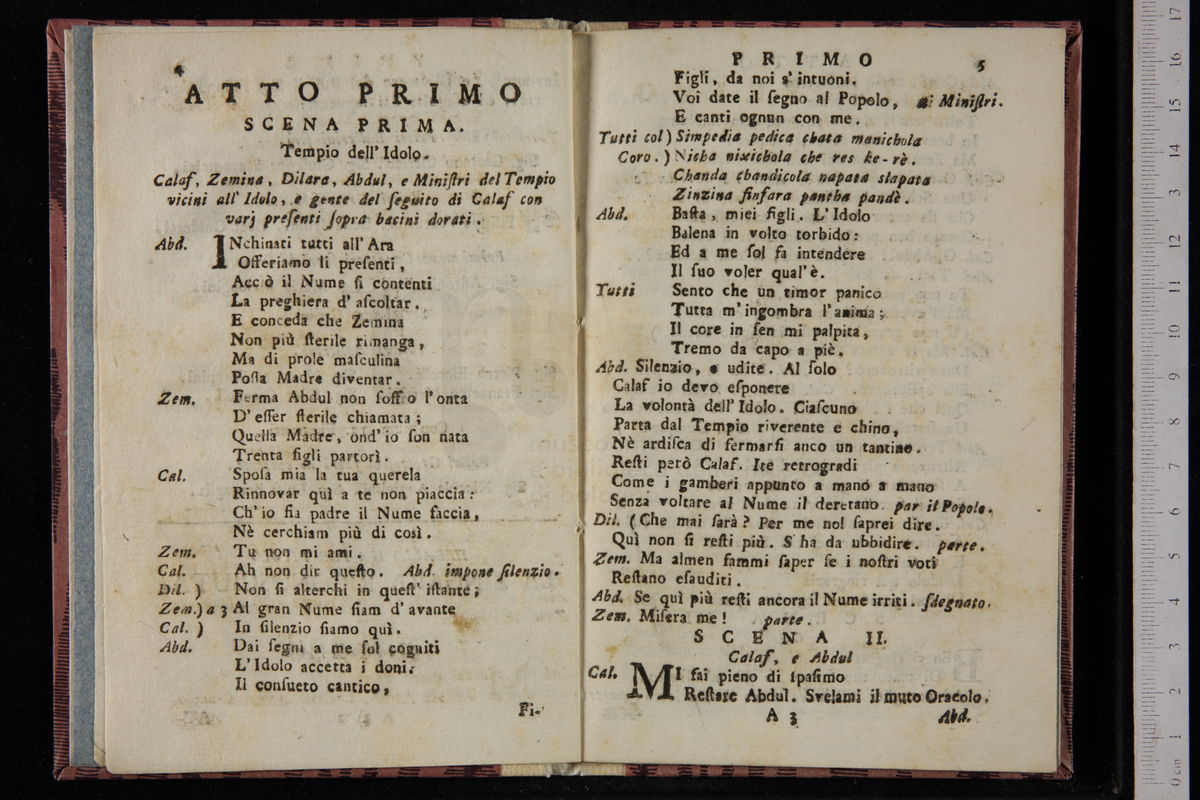 4
ATTO PRIMO
SCENA PRIMA.
Tempio dell' Idolo.
Calaf, Zemina, Dilara, Abdul, e Miniſtri del Tempio
vicini all' Idolo, e gente del ſeguito di Calaf con
varj preſenti ſopra bacini dorati.
Abd. INchinati tutti all' Ara
Offeriamo li preſenti,
Acciò il Nume ſi contenti
La preghiera d' aſcoltar,
E conceda che Zemina
Non più ſterile rimanga,
Ma di prole maſculina
Poſſa Madre diventar.
Zem. Ferma Abdul non ſoffro l' onta
D' eſſer ſterile chiamata;
Quella Madre, ond' io ſon nata
Trenta figli partorì.
Cal. Spoſa mia la tua querela
Rinnovar quì a te non piaccia:
Ch' io ſia padre il Nume faccia,
Nè cerchiam più di così.
Zem. Tu non mi ami.
Cal. Ah non dir queſto. Abd. impone ſilenzio.
Dil. ) Non ſi alterchi in queſt' iſtante;
Zem.) a 3 Al gran Nume ſiam d' avante
Cal. ) In ſilenzio ſiamo quì.
Abd. Dai ſegni a me ſol cogniti
L' Idolo accetta i doni:
Il conſueto cantico,
Fi-
PRIMO 5
Figli, da noi s' intuoni.
Voi date il ſegno al Popolo, ai Miniſtri.
E canti ognun con me.
Tutti col ) Simpedia pedica chata manichola
Coro. ) Nicha nixichola che res ke-rè.
Chanda chandicola napata slapata
Zinzina finfara pantha pandè.
Abd. Baſta, miei figli. L' Idolo
Balena in volto torbido:
Ed a me ſol fa intendere
Il ſuo voler qual' è.
Tutti Sento che un timor panico
Tutta m' ingombra l' anima;
Il core in ſen mi palpita,
Tremo da capo a piè.
Abd. Silenzio, e udite. Al ſolo
Calaf io devo eſponere
La volontà dell' Idolo. Ciaſcuno
Parta dal Tempio riverente e chino,
Nè ardiſca di fermarſi anco un tantino.
Reſti però Calaf. Ite retrogradi
Come i gamberi appunto a mano a mano
Senza voltare al Nume il deretano. par il Popolo.
Dil. (Che mai ſarà? Per me nol ſaprei dire.
Quì non ſi reſti più. S' ha da ubbidire. parte.
Zem. Ma almen fammi ſaper ſe i noſtri voti
Reſtano eſauditi.
Abd. Se quì più reſti ancora il Nume irriti. ſdegnato.
Zem. Miſera me! parte.
SCENA II.
Calaf, e Abdul
Cal. MI fai pieno di ſpaſimo
Reſtare Abdul. Svelami il muto Oracolo.
A 3 Abd.